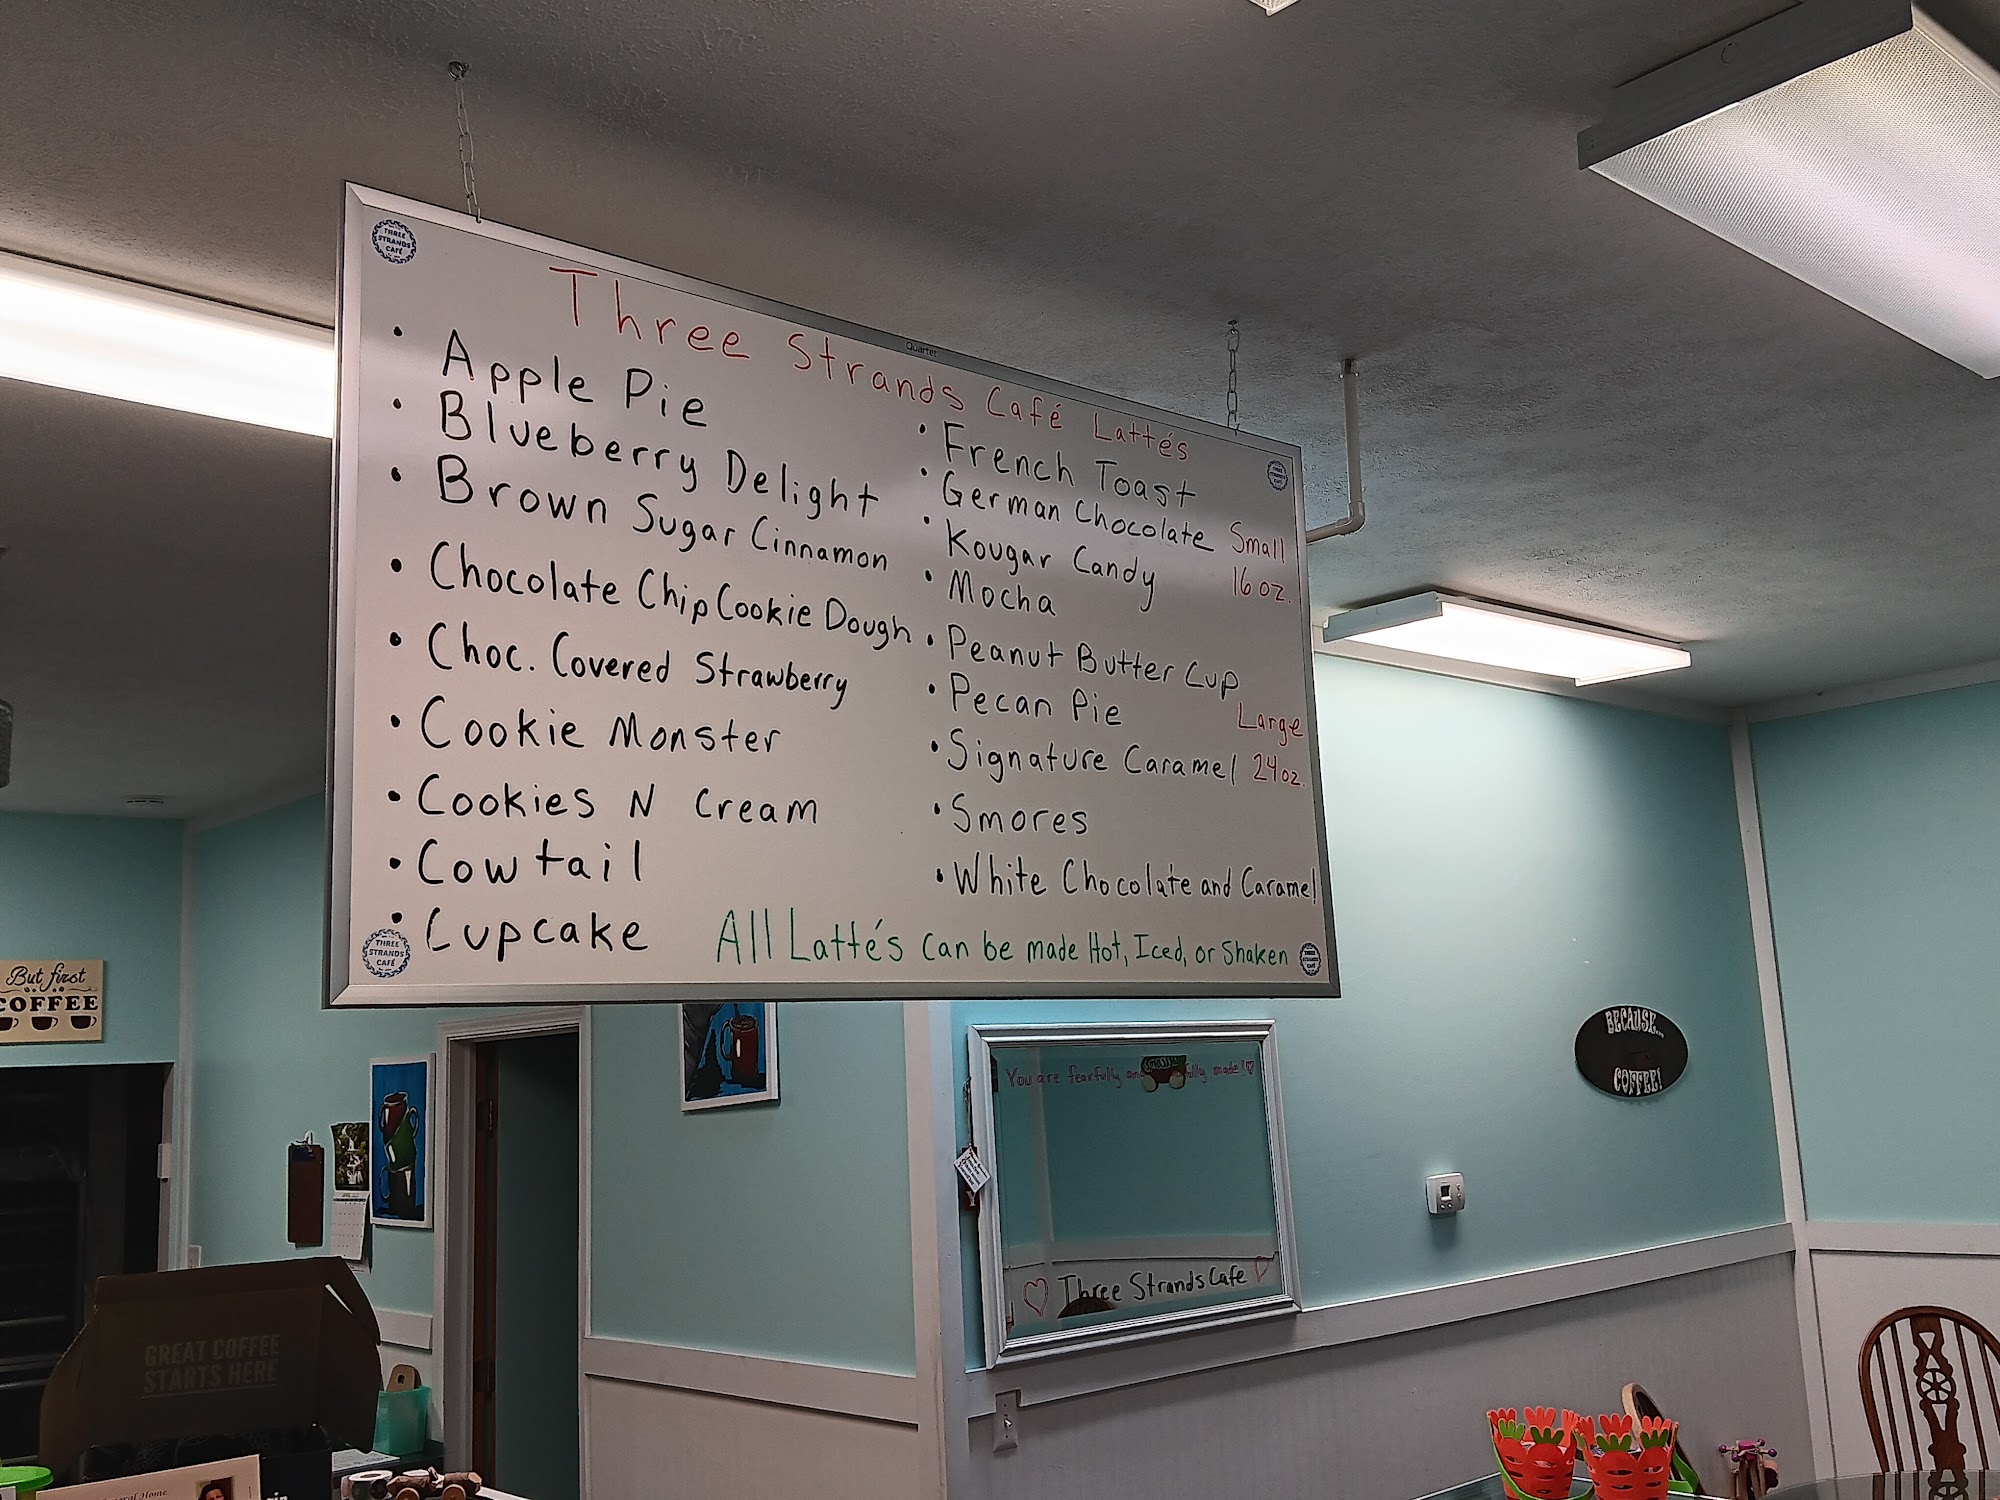 THREE
STRANDS
CAFÉ
Quartet
Three Strands Café Lattés
• Apple Pie
• Blueberry Delight
• Brown Sugar Cinnamon
• Chocolate Chip Cookie Dough
• Choc. Covered Strawberry
• Cookie Monster
• Cookies N Cream
• Cowtail
• Cupcake
• French Toast
• German Chocolate
• Kougar Candy
• Mocha
• Peanut Butter Cup
• Pecan Pie
• Signature Caramel
• Smores
• White Chocolate and Caramel
Small
16 oz.
Large
24 oz.
All Latté's can be made Hot, Iced, or Shaken
THREE
STRANDS
CAFÉ
THREE
STRANDS
CAFÉ
THREE
STRANDS
CAFÉ
But first
COFFEE
BECAUSE...
COFFEE!
You are fearfully and made!
Three Strands Cafe
GREAT COFFEE
STARTS HERE
Home